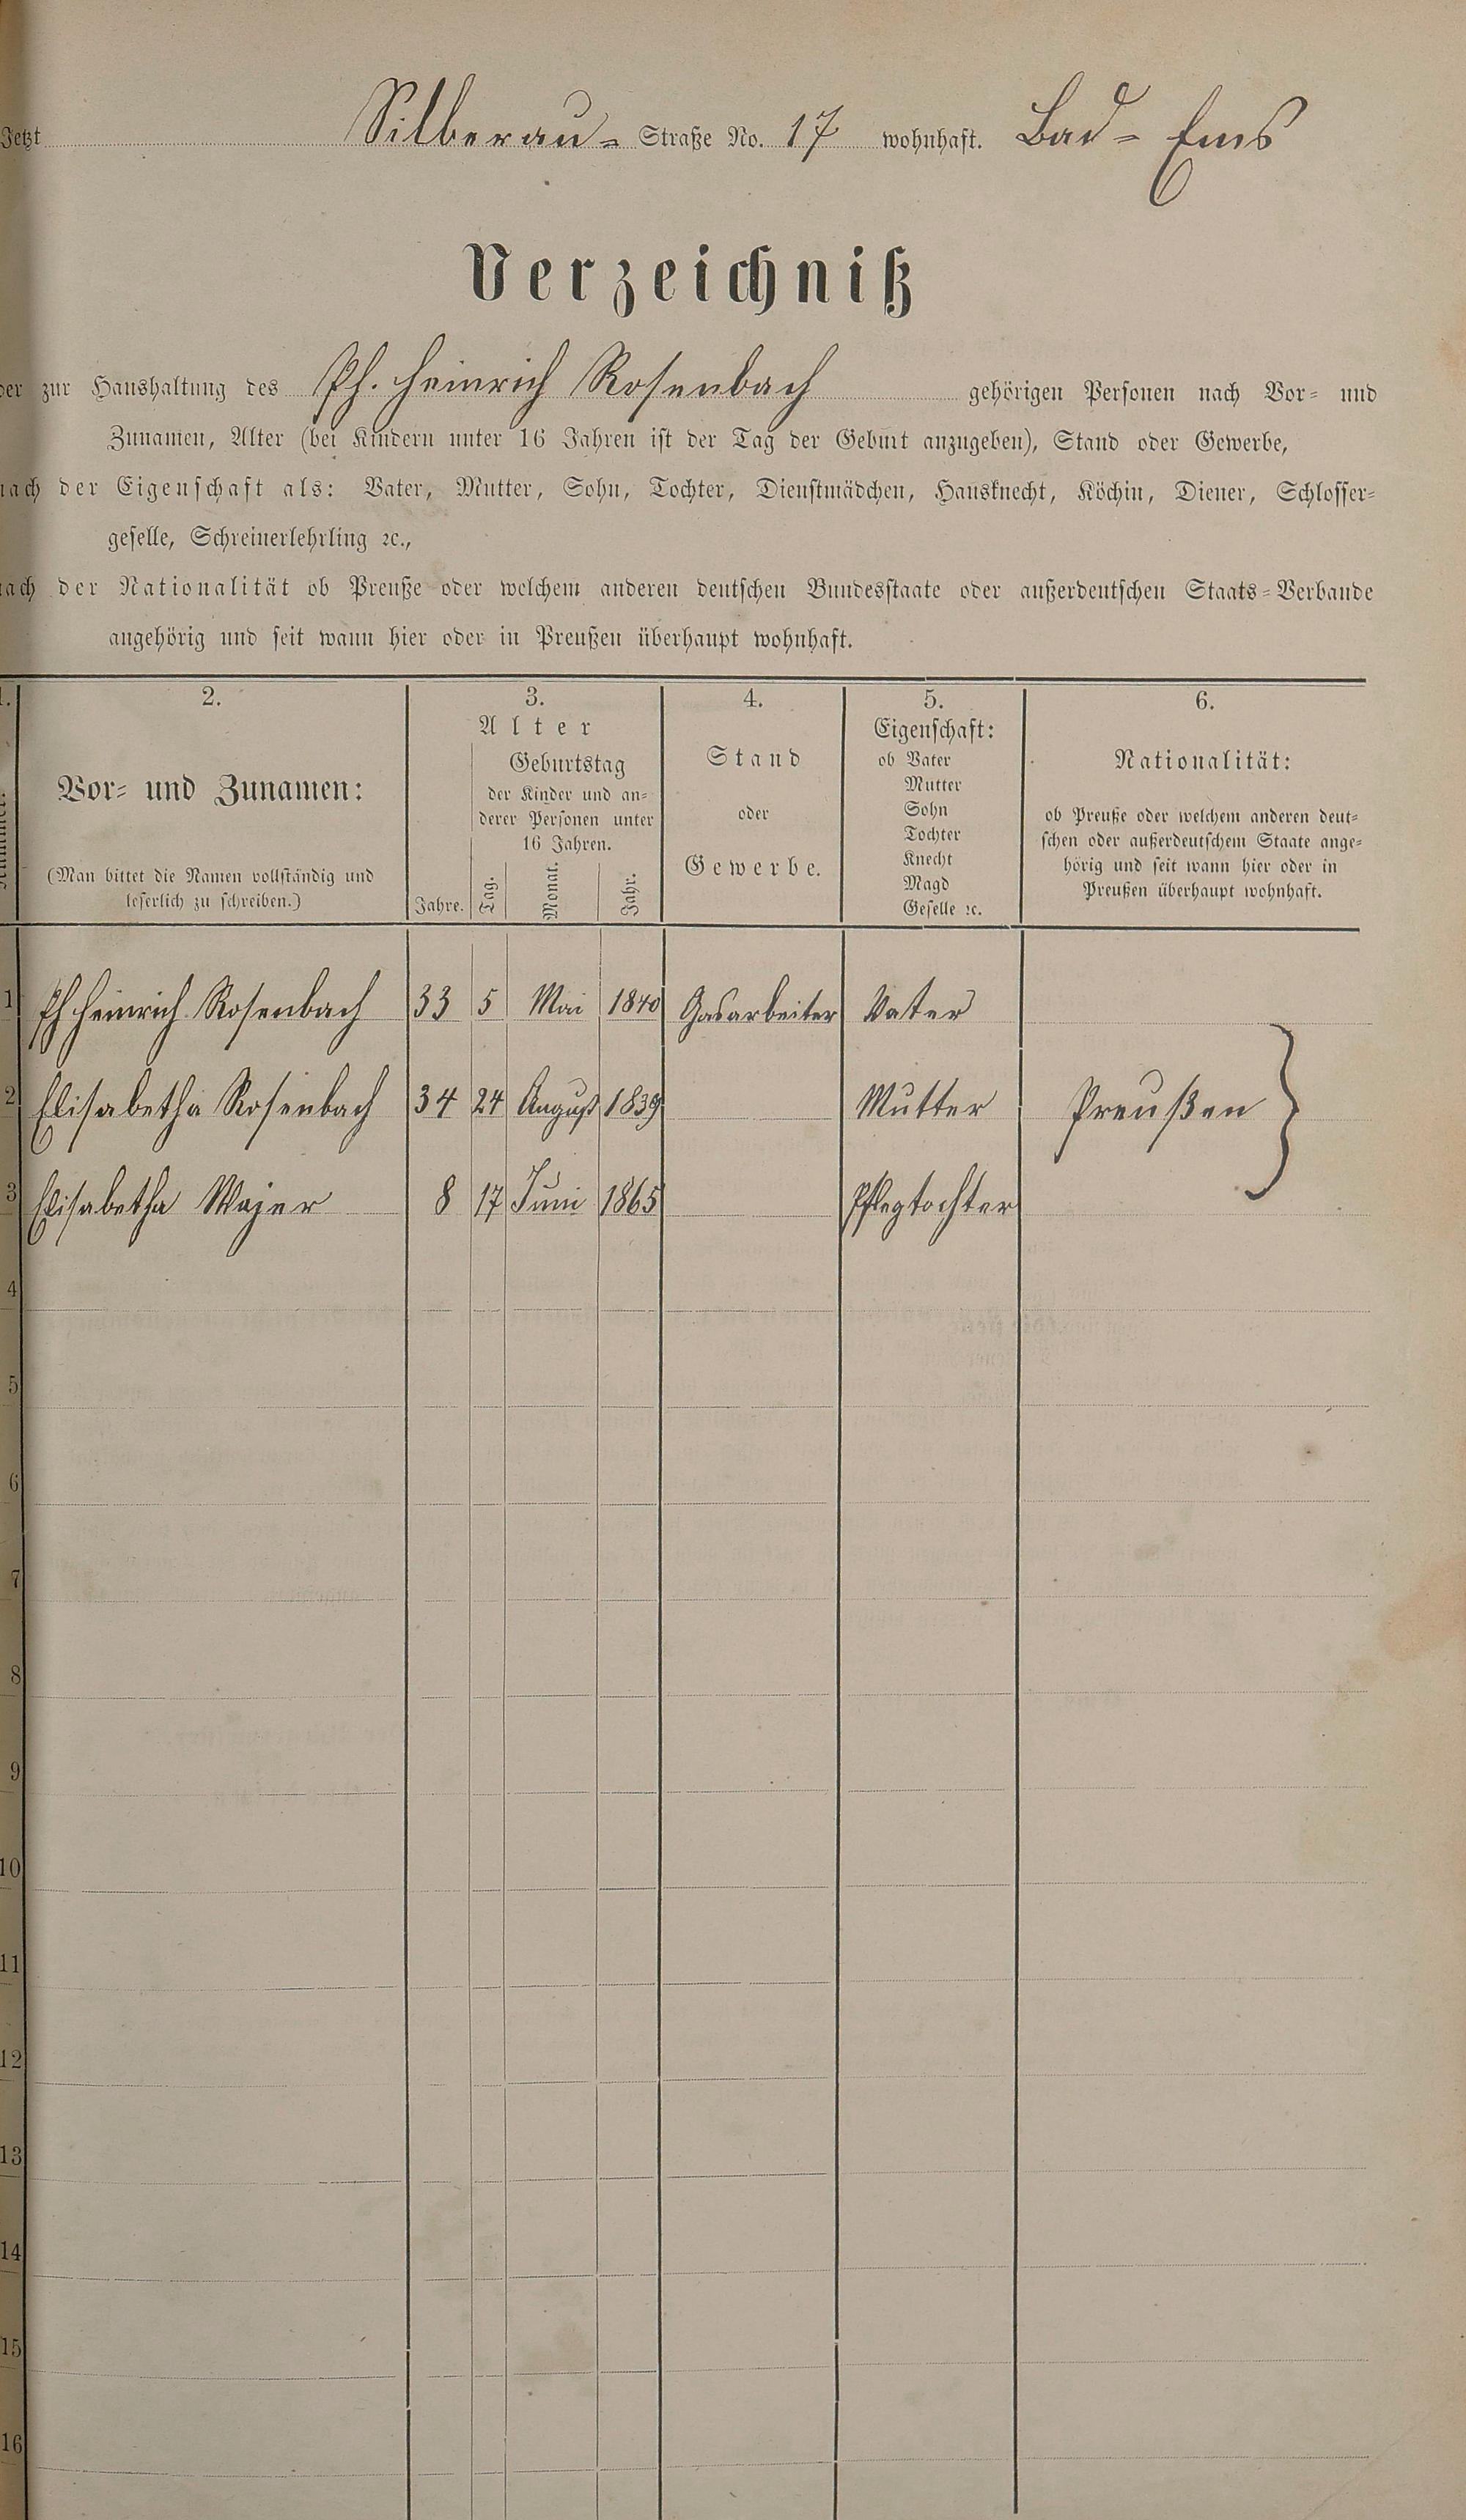 Jetzt Silberau- Straße No. 17 wohnhaft. Bad-Ems
Verzeichniß
der zur Haushaltung des Ph. Heinrich Rosenbach gehörigen Personen nach Vor- und
Zunamen, Alter (bei Kindern unter 16 Jahren ist der Tag der Geburt anzugeben), Stand oder Gewerbe,
nach der Eigenschaft als: Vater, Mutter, Sohn, Tochter, Dienstmädchen, Hausknecht, Köchin, Diener, Schlosser-
geselle, Schreinerlehrling ꝛc.,
nach der Nationalität ob Preuße oder welchem anderen deutschen Bundesstaate oder außerdeutschen Staats-Verbande
angehörig und seit wann hier oder in Preußen überhaupt wohnhaft.
1. 2. 3. 4. 5. 6.
Vor- und Zunamen:
(Man bittet die Namen vollständig und
leserlich zu schreiben.)
Alter
Geburtstag
der Kinder und an-
derer Personen unter
16 Jahren.
Jahre. Tag. Monat. Jahr.
Stand
oder
Gewerbe.
Eigenschaft:
ob Vater
Mutter
Sohn
Tochter
Knecht
Magd
Geselle ꝛc.
Nationalität:
ob Preuße oder welchem anderen deut-
schen oder außerdeutschem Staate ange-
hörig und seit wann hier oder in
Preußen überhaupt wohnhaft.
1 Ph Heinrich Rosenbach 33 5 Mai 1840 Gasarbeiter Vater
2 Elisabetha Rosenbach 34 24 August 1839 Mutter Preußen
3 Elisabetha Majer 8 17 Juni 1865 Pflegtochter
4
5
6
7
8
9
10
11
12
13
14
15
16